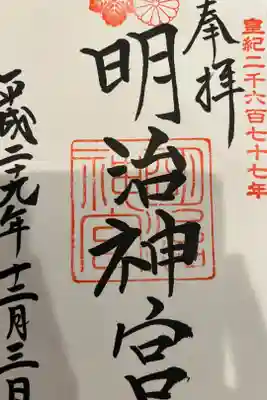 皇紀二千六百七十七年
奉拝
明治神宮
平成二十九年十二月三日
明治神宮